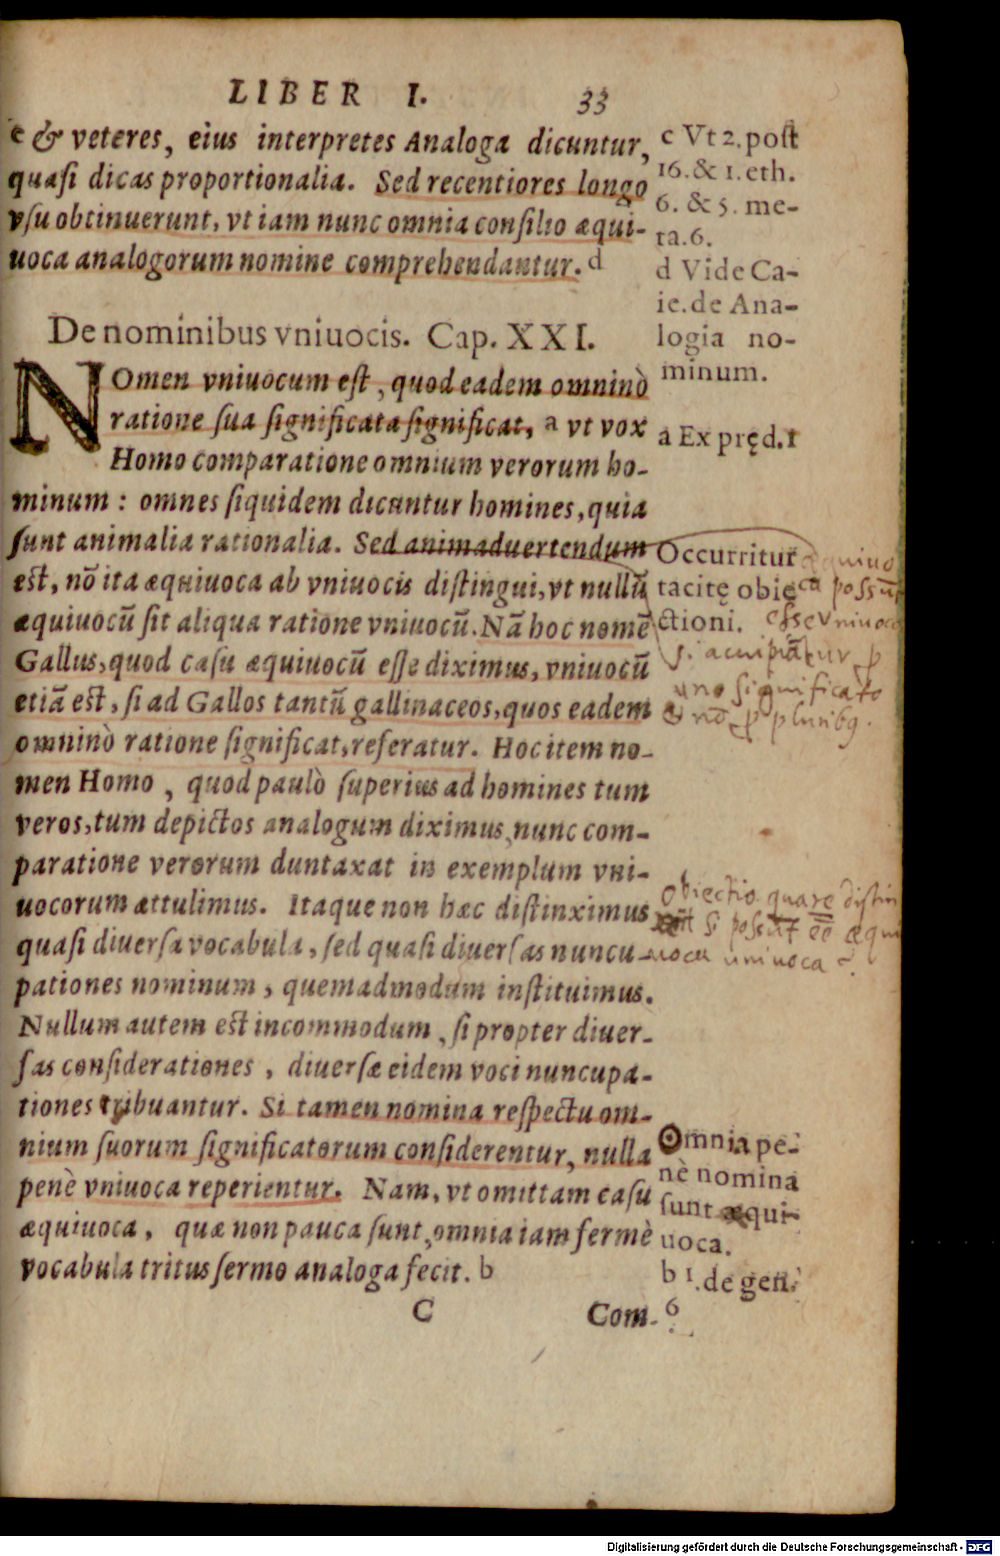 LIBER I. 33
c & veteres, eius interpretes Analoga dicuntur,
quasi dicas proportionalia. Sed recentiores longo
vsu obtinuerunt, vt iam nunc omnia consilio æqui-
uoca analogorum nomine comprehendantur. d
c Vt 2. post
16. & 1. eth.
6. & 5. me-
ta. 6.
d Vide Ca-
ie. de Ana-
logia no-
minum.
De nominibus vniuocis. Cap. XXI.
NOmen vniuocum est, quod eadem omninò
ratione sua significata significat, a vt vox
Homo comparatione omnium verorum ho-
minum: omnes siquidem dicuntur homines, quia
sunt animalia rationalia. Sed animaduertendum
est, nō ita æquiuoca ab vniuocis distingui, vt nullū
æquiuocū sit aliqua ratione vniuocū. Nā hoc nomē
Gallus, quod casu æquiuocū esse diximus, vniuocū
etiā est, si ad Gallos tantū gallinaceos, quos eadem
omninò ratione significat, referatur. Hoc item no-
men Homo, quod paulò superius ad homines tum
veros, tum depictos analogum diximus, nunc com-
paratione verorum duntaxat in exemplum vni-
uocorum attulimus. Itaque non hæc distinximus
quasi diuersa vocabula, sed quasi diuersas nuncu-
pationes nominum, quemadmodum instituimus.
Nullum autem est incommodum, si propter diuer-
sas considerationes, diuersæ eidem voci nuncupa-
tiones tribuantur. Si tamen nomina respectu om-
nium suorum significatorum considerentur, nulla
penè vniuoca reperientur. Nam, vt omittam casu
æquiuoca, quæ non pauca sunt, omnia iam fermè
vocabula tritus sermo analoga fecit. b
a Ex pręd. 1
Occurritur
tacitę obie
ctioni.
æquiuo
ca possūt
esse vniuoca
si accipiātur p
uno significato
& nō p pluribꝰ.
obiectio quare distin
si possūt ee æqui
uoca univoca
Omnia pe-
nè nomina
sunt æqui-
uoca.
b 1. de gen.
6
C Com-
Digitalisierung gefördert durch die Deutsche Forschungsgemeinschaft - DFG